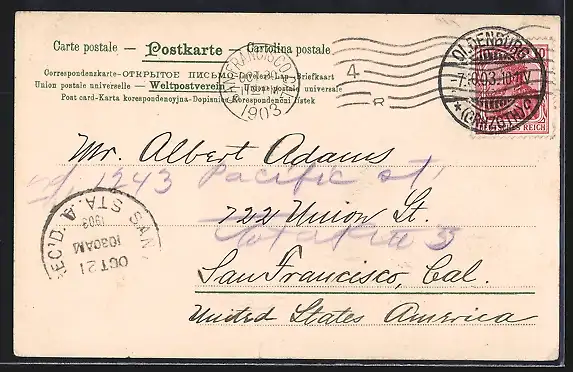 Carte postale – Postkarte – Cartolina postale
Correspondenzkarte – ОТКРЫТОЕ ПИСЬМО – Levelező-Lap – Briefkaart
Union postale universelle – Weltpostverein – Unione postale universale
Post card – Karta korespondencyjna – Dopisnice – Korespondenční lístek
SAN FRANCISCO
1903
4
OLDENBURG
*(GRHZGTH.)*
REICH
Mr. Albert Adams
1243 Pacific st.
722 Union St.
San Francisco, Cal.
United States America
REC'D.
SAN
STA. A
OCT 21
1030 AM
1903